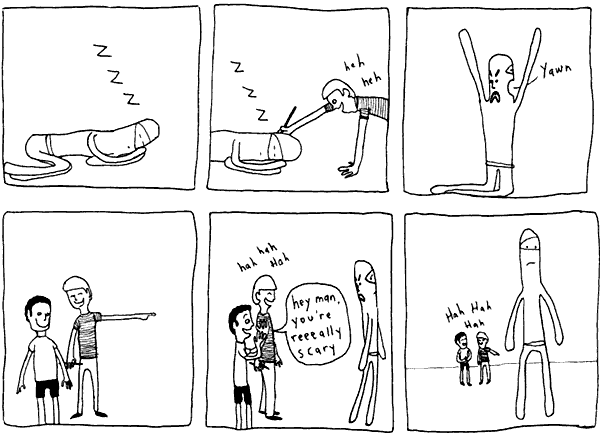 Z
Z
Z
Z
Z
Z
heh
heh
Yawn
hah hah
Hah
hey man,
you're
reeeally
scary
Hah Hah
Hah